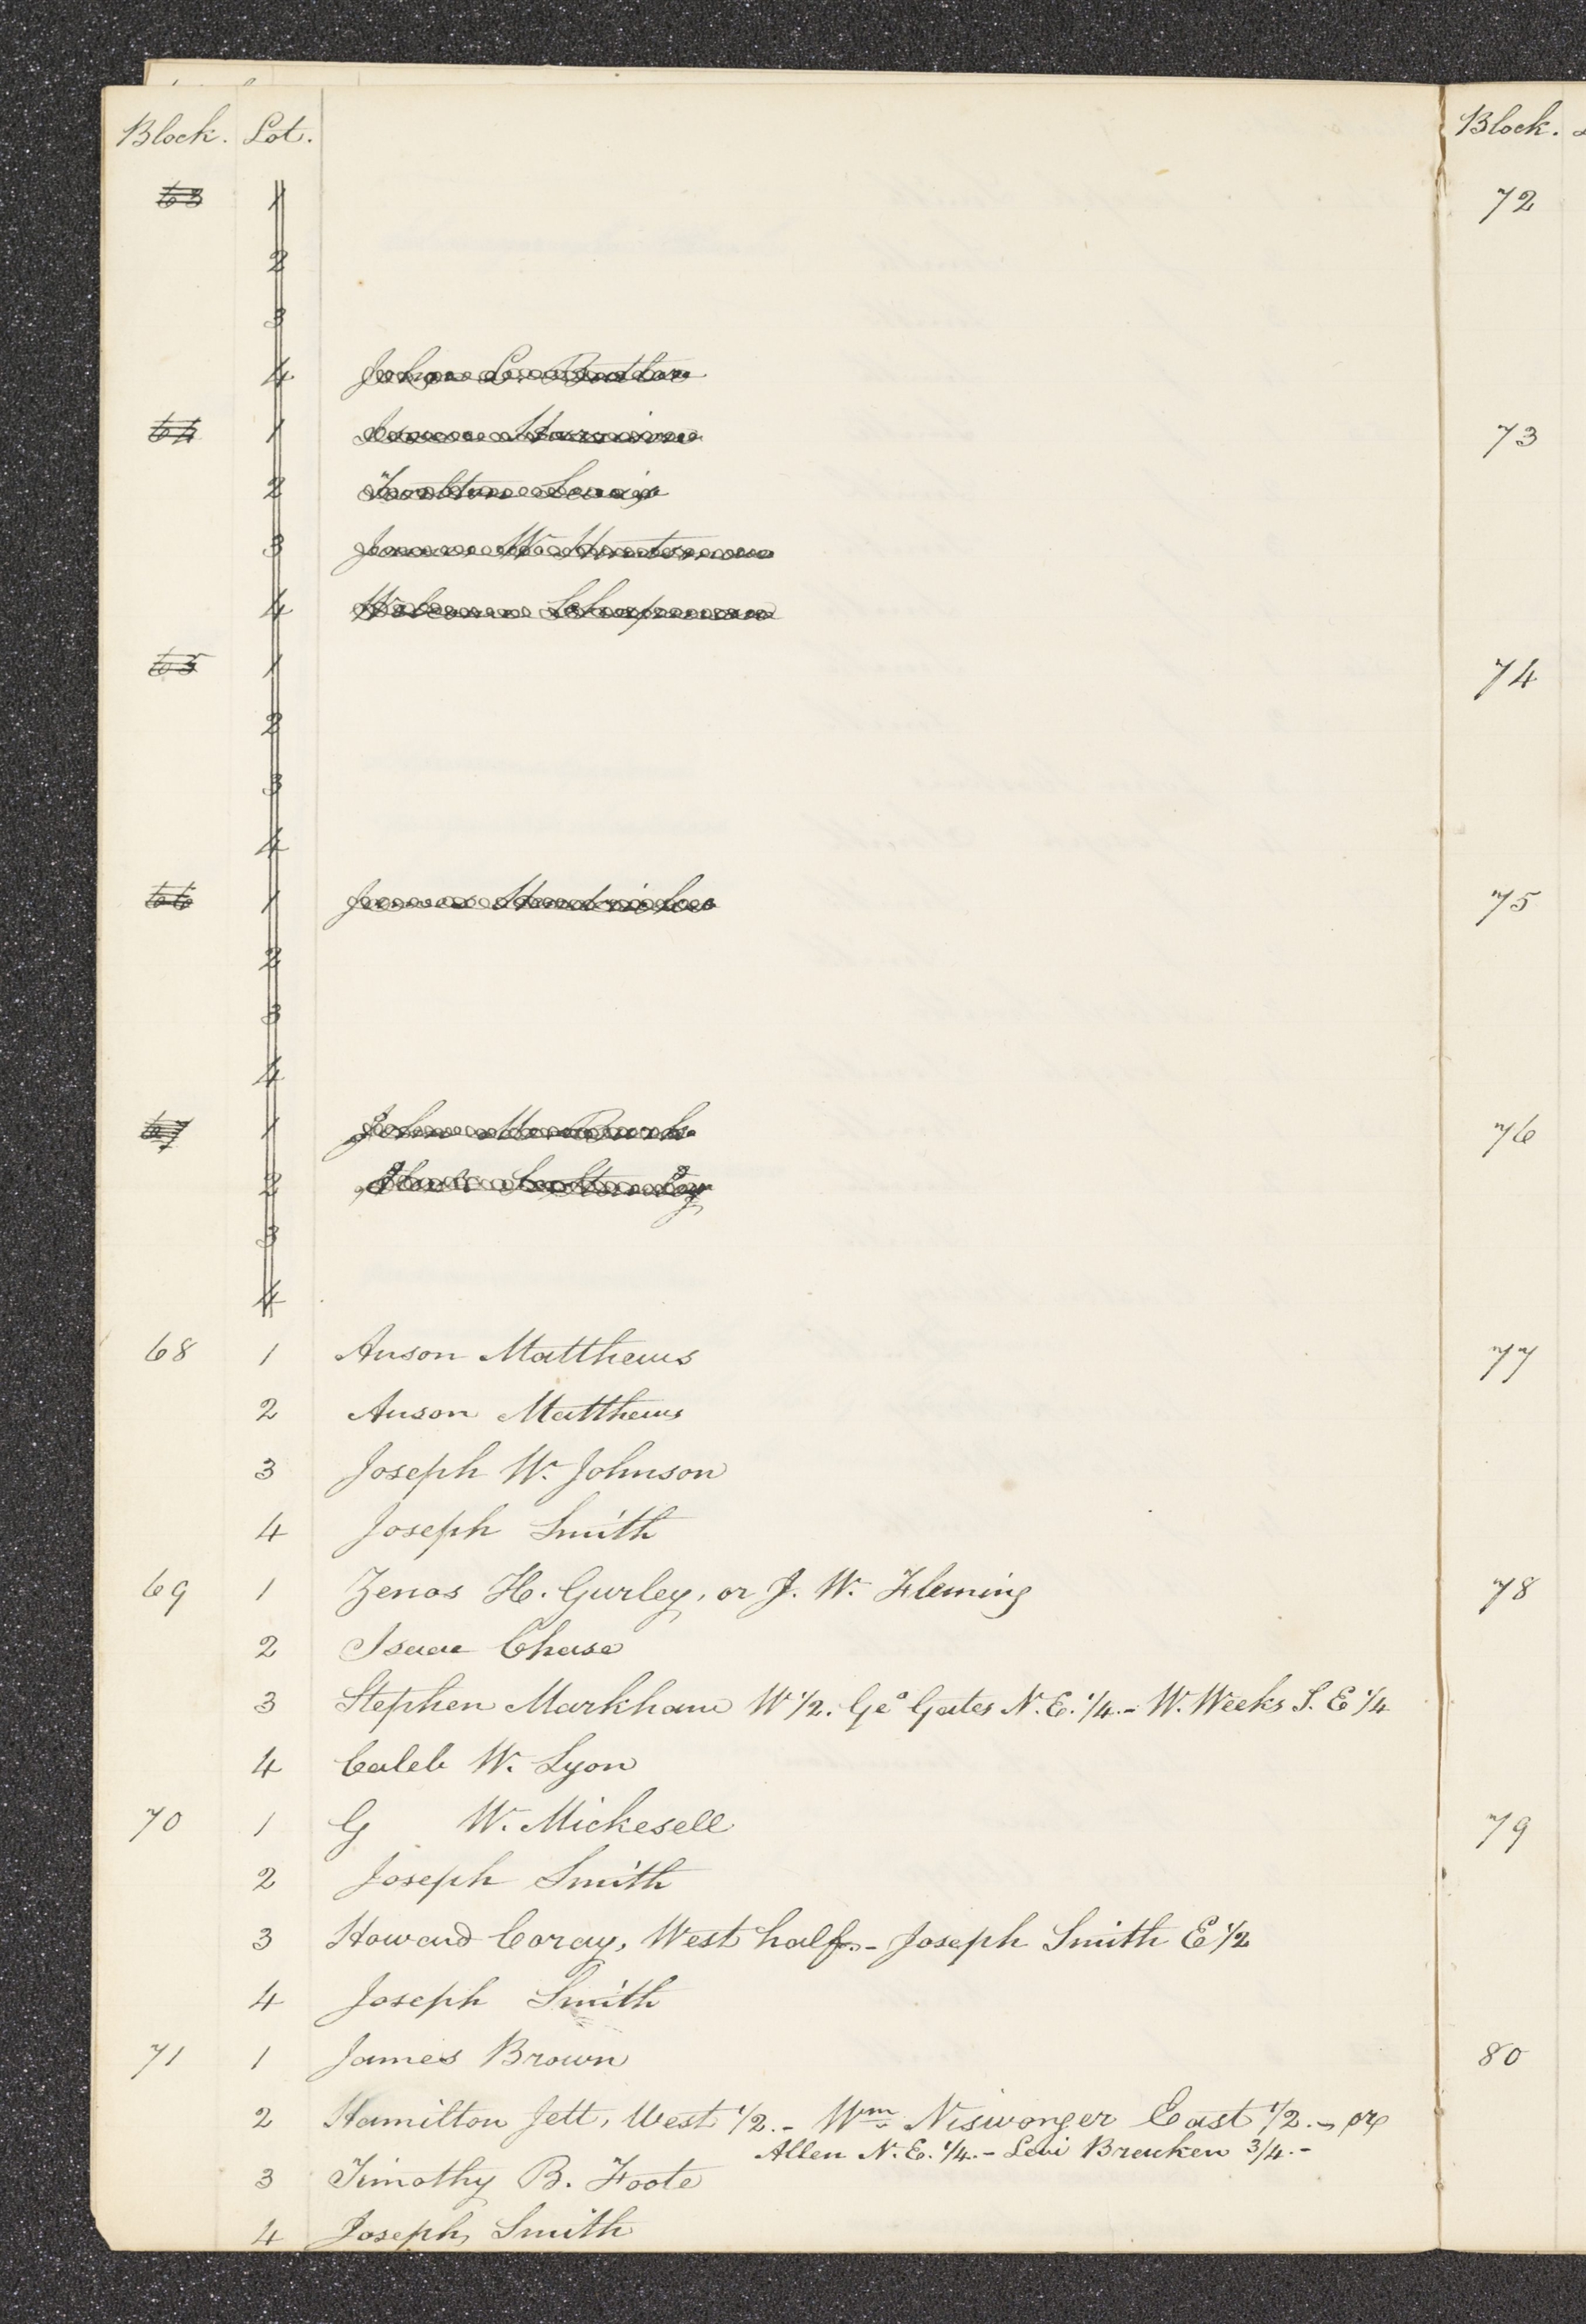 Block. Lot.
63 1
2
3
4 John L. Butler
64 1
2 Lewis
3 James W. Huntsman
4 Chapman
65 1
2
3
4
66 1 James Hendricks
2
3
4
67 1 John M. Burk
2
3
4
68 1 Anson Matthews
2 Anson Matthews
3 Joseph W. Johnson
4 Joseph Smith
69 1 Zenos H. Gurley, or J. W. Fleming
2 Isaac Chase
3 Stephen Markham W 1/2. Geo Gates N. E. 1/4.- W. Weeks S. E 1/4
4 Caleb W. Lyon
70 1 G W. Mickesell
2 Joseph Smith
3 Howard Coray, West half.- Joseph Smith E 1/2
4 Joseph Smith
71 1 James Brown
2 Hamilton Jett, West 1/2.- Wm Niswonger East 1/2.- or
Allen N. E. 1/4.- Levi Bracken 3/4.-
3 Timothy B. Foote
4 Joseph Smith
Block.
72
73
74
75
76
77
78
79
80